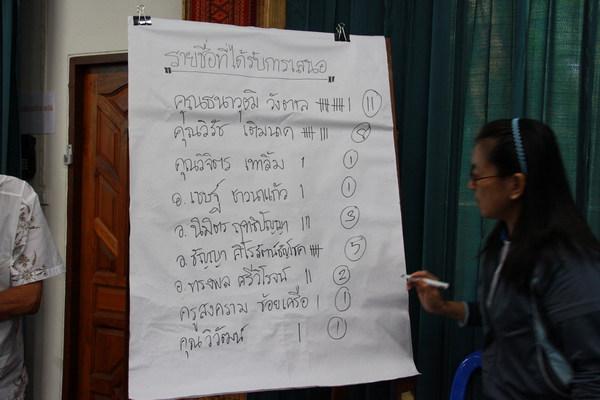 รายชื่อที่ได้รับการเสนอ
คุณธนาวุฒิ วังตาล 11
คุณวิรัช เติมนาค 8
คุณวิจิตร 1
อ. เชษฐ์ ชาวนาแก้ว 1
อ. นิมิตร ฤทธิปัญญา 3
อ. ธัญญา 5
อ. ทรงพล ศรีวิโรจน์ 2
ครูสงคราม ช้อยเครือ 1
คุณวิวัฒน์ 1